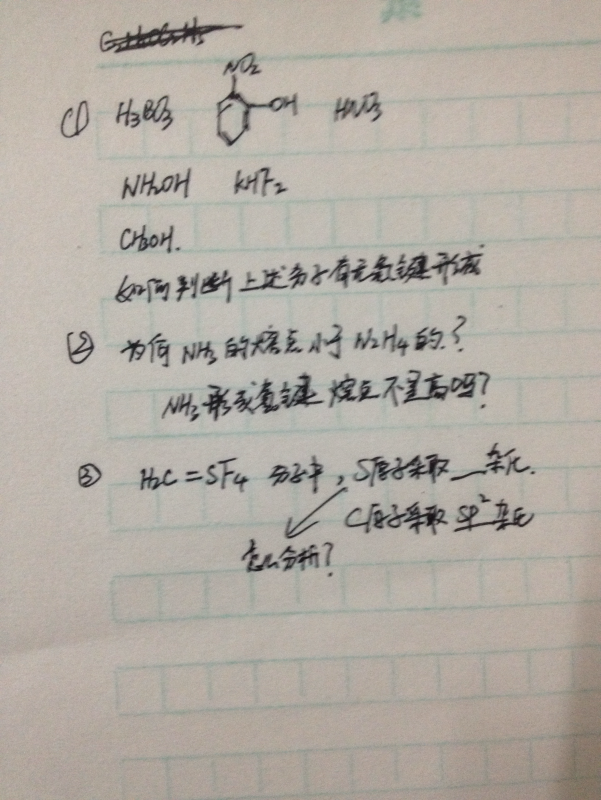 (1) H3BO3 NO2 OH HNO3
NH2OH KHF2
CH3OH.
如何判断上述分子有无氢键形成
② 为何NH3的熔点小于N2H4的?
NH3形成氢键 熔点不是高吗?
③ H2C=SF4 分子中,S原子采取__杂化.
C原子采取 SP2 杂化
怎么分析?